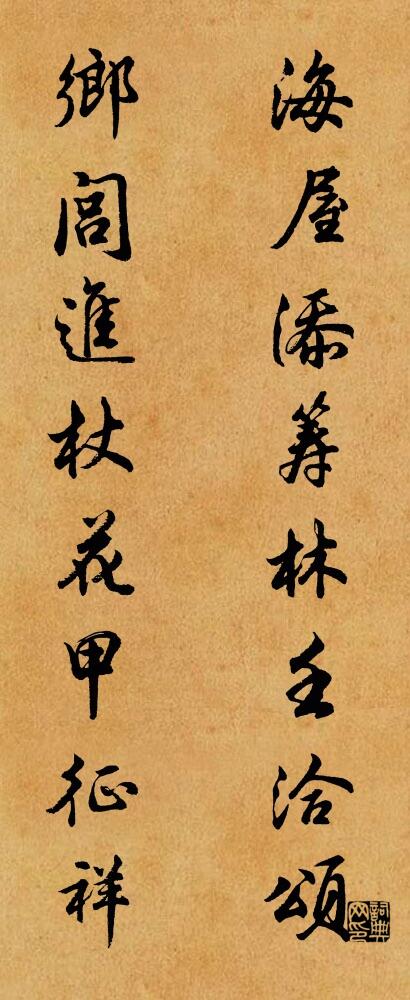 海屋添筹林壬洽頌
鄉閭進杖花甲征祥
詞典网印